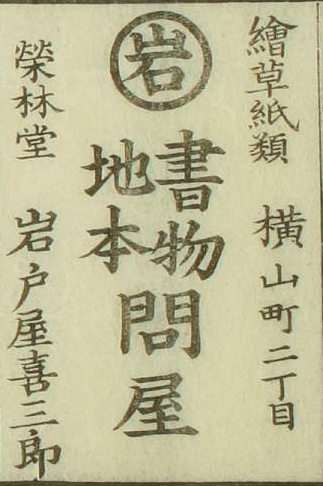 繪草紙類 横山町二丁目
岩
書物
地本
問屋
榮林堂 岩戸屋喜三郎